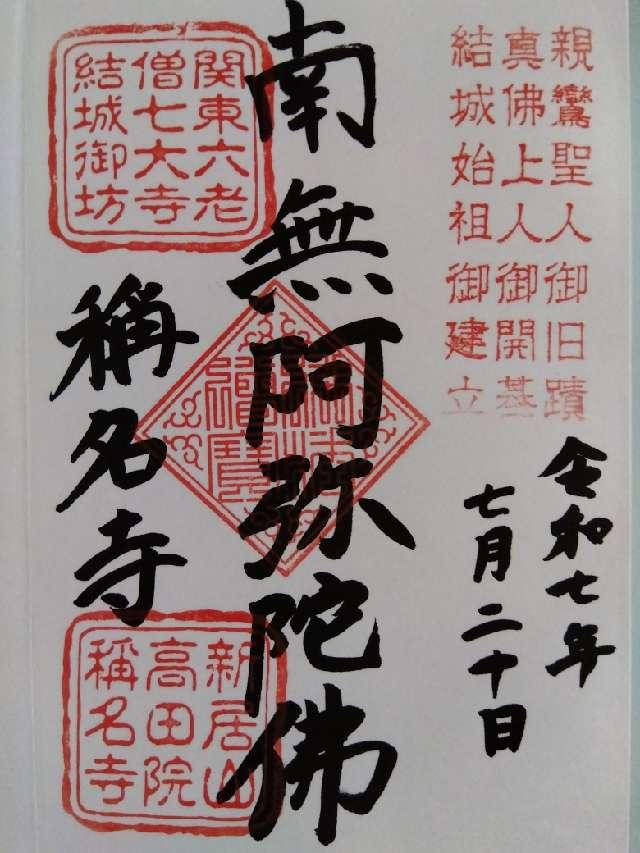 親鸞聖人御旧蹟
真佛上人御開基
結城始祖御建立
令和七年
七月二十日
南無阿弥陀佛
関東六老
僧七大寺
結城御坊
稱名寺
新居山
高田院
稱名寺